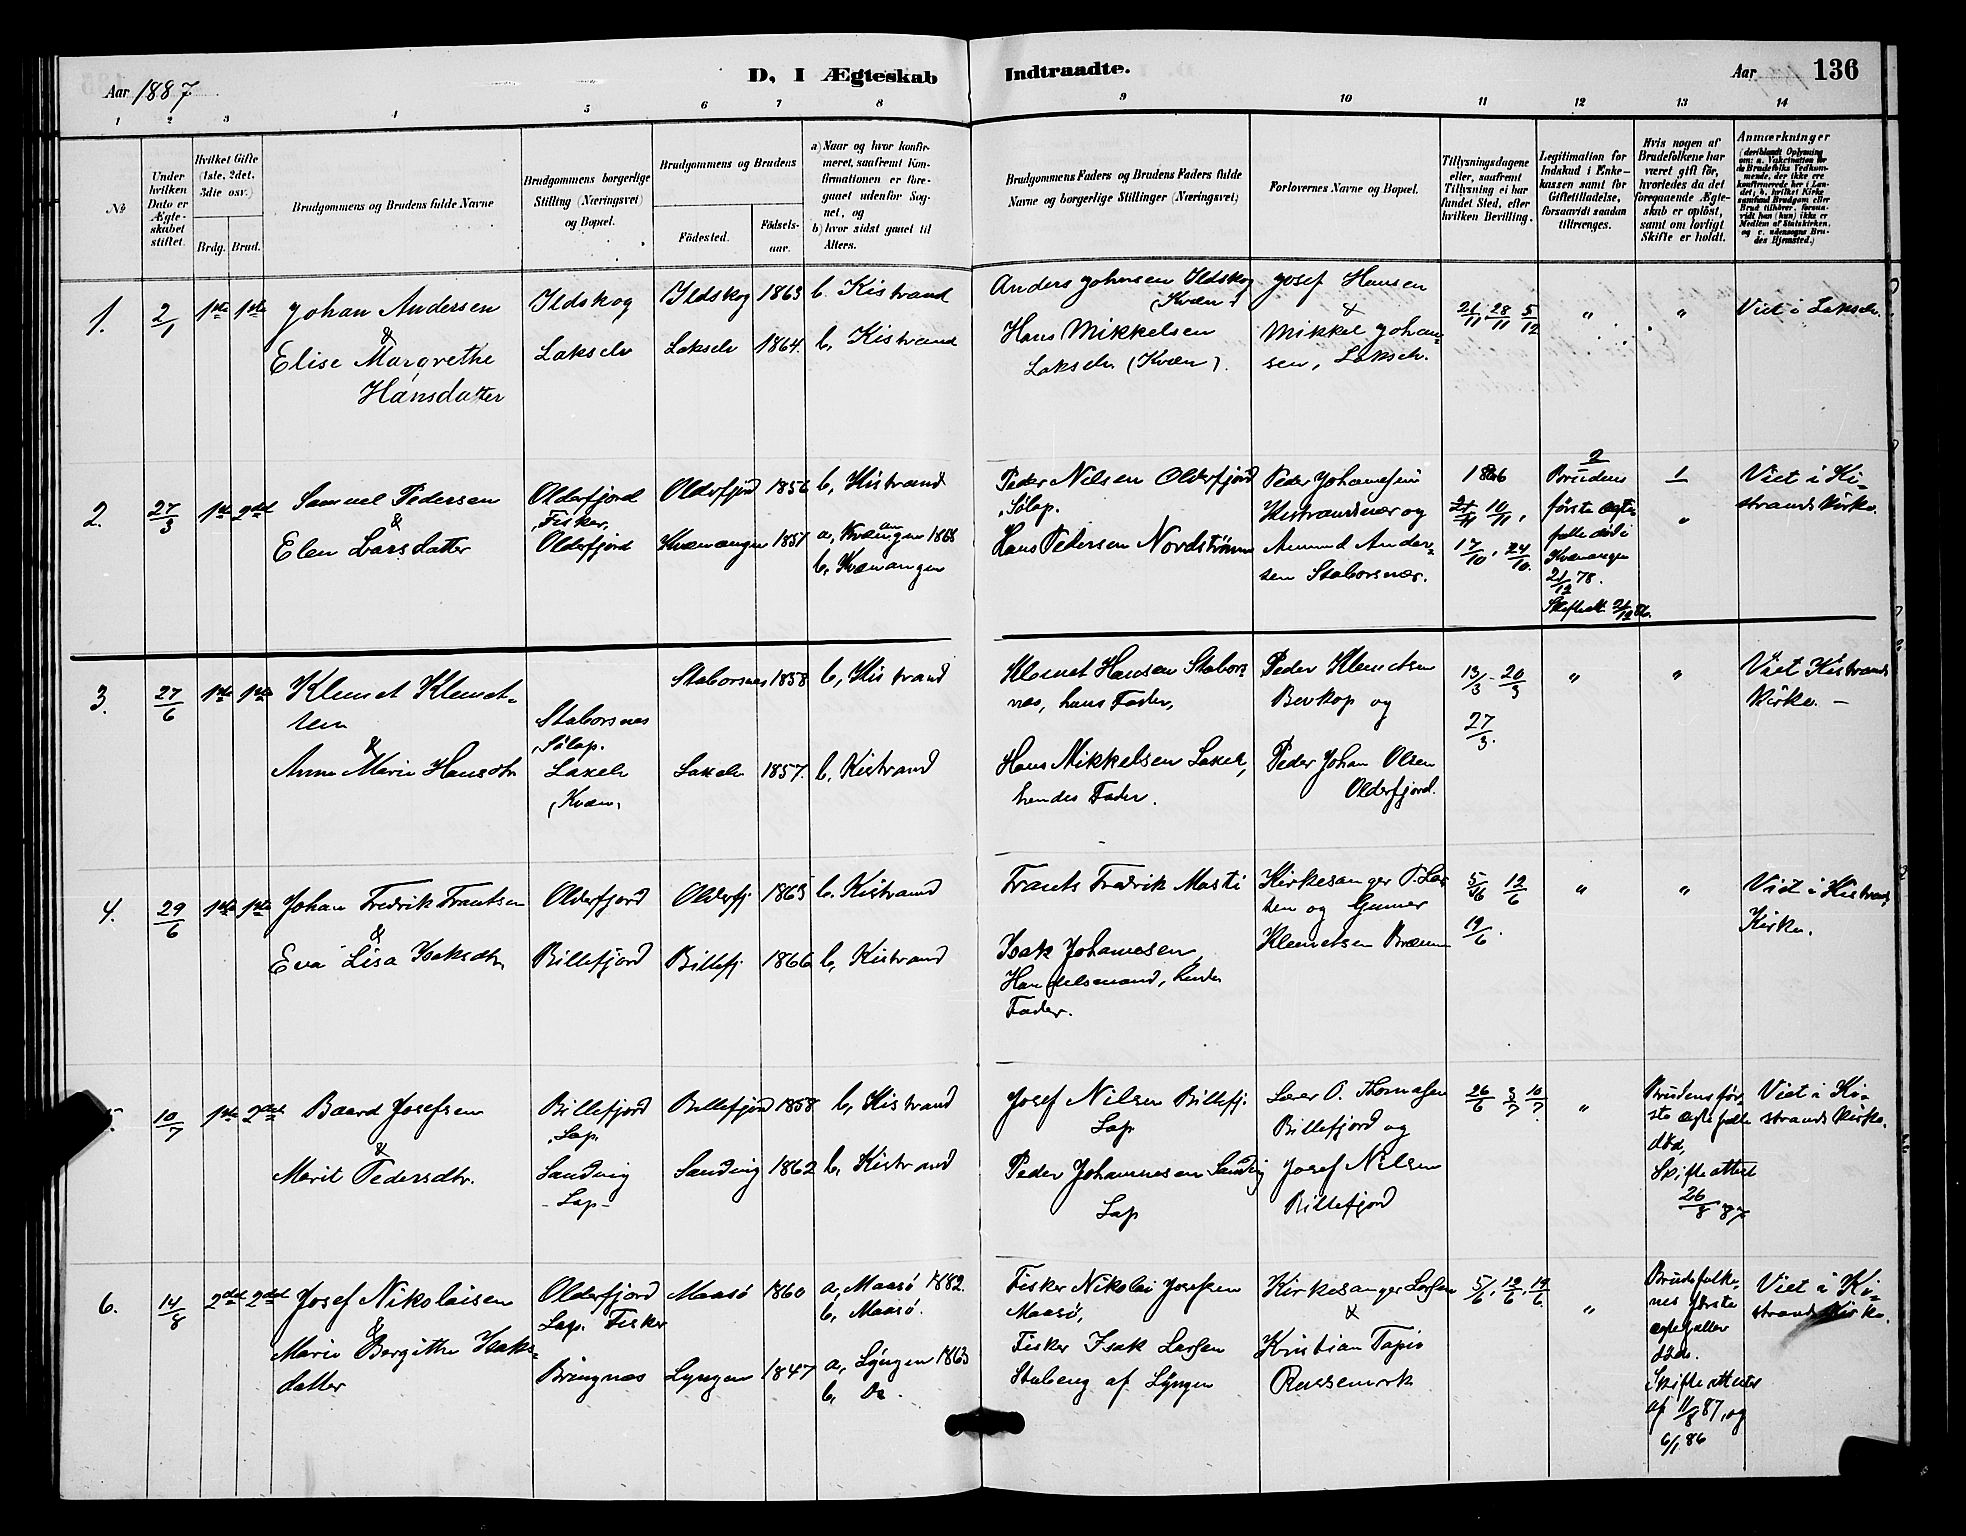 Aar 1887
D, I Ægteskab Indtraadte.
Aar
136
1 2 3 4 5 6 7 8 9 10 11 12 13 14
№
Under hvilken Dato er Ægteskabet stiftet.
Hvilket Gifte (1ste, 2det, 3dte osv.)
Brdg. Brud.
Brudgommens og Brudens fulde Navne
Brudgommens borgerlige Stilling (Næringsvei) og Bopæl.
Brudgommens og Brudens
Födested.
Födselsaar.
a) Naar og hvor konfirmeret, saafremt Konfirmationen er foregaaet udenfor Sognet, og
b) hvor sidst gaaet til Alters.
Brudgommens Faders og Brudens Faders fulde Navne og borgerlige Stillinger (Næringsvei)
Forlovernes Navne og Bopæl.
Tillysningsdagene eller, saafremt Tillysning ei har fundet Sted, efter hvilken Bevilling.
Legitimation for Indskud i Enkekassen samt for Giftetilladelse, forsaavidt saadan tiltrænges.
Hvis nogen af Brudefolkene har været gift för, hvorledes da det foregaaende Ægteskab er oplöst, samt om lovligt Skifte er holdt.
Anmærkninger
1. 2/1 1ste 1ste
Johan Andersen
&
Elise Margrethe
Hansdatter
Ildskog
Lakselv
Ildskog 1863
Lakselv 1864.
b. Kistrand
b, Kistrand
Anders Johnsen Ildskog
(Kvæn)
Hans Mikkelsen
Lakselv (Kvæn).
Josef Hansen
&
Mikkel Johan-
sen, Lakselv.
21/11, 28/11 5/12
" "
Viet i Lakselv.
2. 27/3 1ste 2det
Samuel Pedersen
&
Elen Larsdatter
Olderfjord
Fisker,
Olderfjord
Olderfjord 1856
Kvænangen 1857
b, Kistrand
a, Kvænangen 1868
b, Kvænangen
Peder Nilsen Olderfjord
Sølap.
Hans Pedersen Nordstrømm
Peder Johannesen
Kistrandsnær og
Amund Ander-
sen Staborsnær.
1886
10/11,
17/10, 24/10.
2
Brudens
første ægte-
falle død i
Kvænangen
21/12 78.
1
"
Viet i Ki-
strands kirke.
3. 27/6 1ste 1ste
Klemet Klemet-
sen
&
Anna Marie Hansdtr
Staborsnes
Sølap.
Lakelv
(Kvæn)
Staborsnes 1858
Lakelv 1857.
b, Kistrand
b, Kistrand
Klemet Hansen Stabors
nes, hans Fader,
Hans Mikkelsen Lakelv,
hendes Fader.
Peder Klemetsen
Bevkop og
Peder Johan Olsen
Olderfjord.
13/3 - 20/3
27/3.
" "
Viet Kistrands
Kirke. —
4. 29/6 1ste 1ste
Johan Fredrik Frantsen
&
Eva Lisa Isaksdtr,
Olderfjord
Billefjord
Olderfj. 1865
Billefj. 1866
b. Kistrand
b, Kistrand
Frants Fredrik Masti
Isak Johannesen,
Handelsmand, hendes
Fader.
Kirkesanger P. Lar
sen og Gunner
Klemetsen Brænn
5/6 12/6
19/6.
" "
Viet i Kistrands
Kirke.
5. 10/7 1ste 2det
Baard Josefsen
&
Marit Pedersdtr.
Billefjord
Lap.
Sandvig
- Lap -
Billefjord 1858
Sandvig 1862
b, Kistrand
b, Kistrand
Josef Nilsen Billefj.
Lap
Peder Johannesen Sandvig
Lap
Lars O. Thomasen
Billefjord og
Josef Nilsen
Billefjord
26/6 3/7 10/7
"
Brudens før-
ste ægtefælle
død,
Skifteattest
26/8 87
Viet i Ki-
strands kirke.
6. 14/8 2det 2det
Josef Nikolaisen
&
Marie Bergithe Isaks-
datter
Olderfjord
Lap. Fisker
Bringnes
Maasö 1860
Lyngen 1847
a, Maasö 1882.
b, Maasö.
a, Lyngen 1863
b, Do.
Fisker Nikolai Josefsen
Maasö,
Fisker Isak Larsen
Stabeng af Lyngen
Kirkesanger Larsen
&
Kristian Tapio
Russemark
5/6, 12/6, 19/6.
"
Brudefolke-
nes første
ægtefæller
døde.
Skifteattester
af 11/8 87, og
6/1 86
Viet i Ki-
strands Kirke.